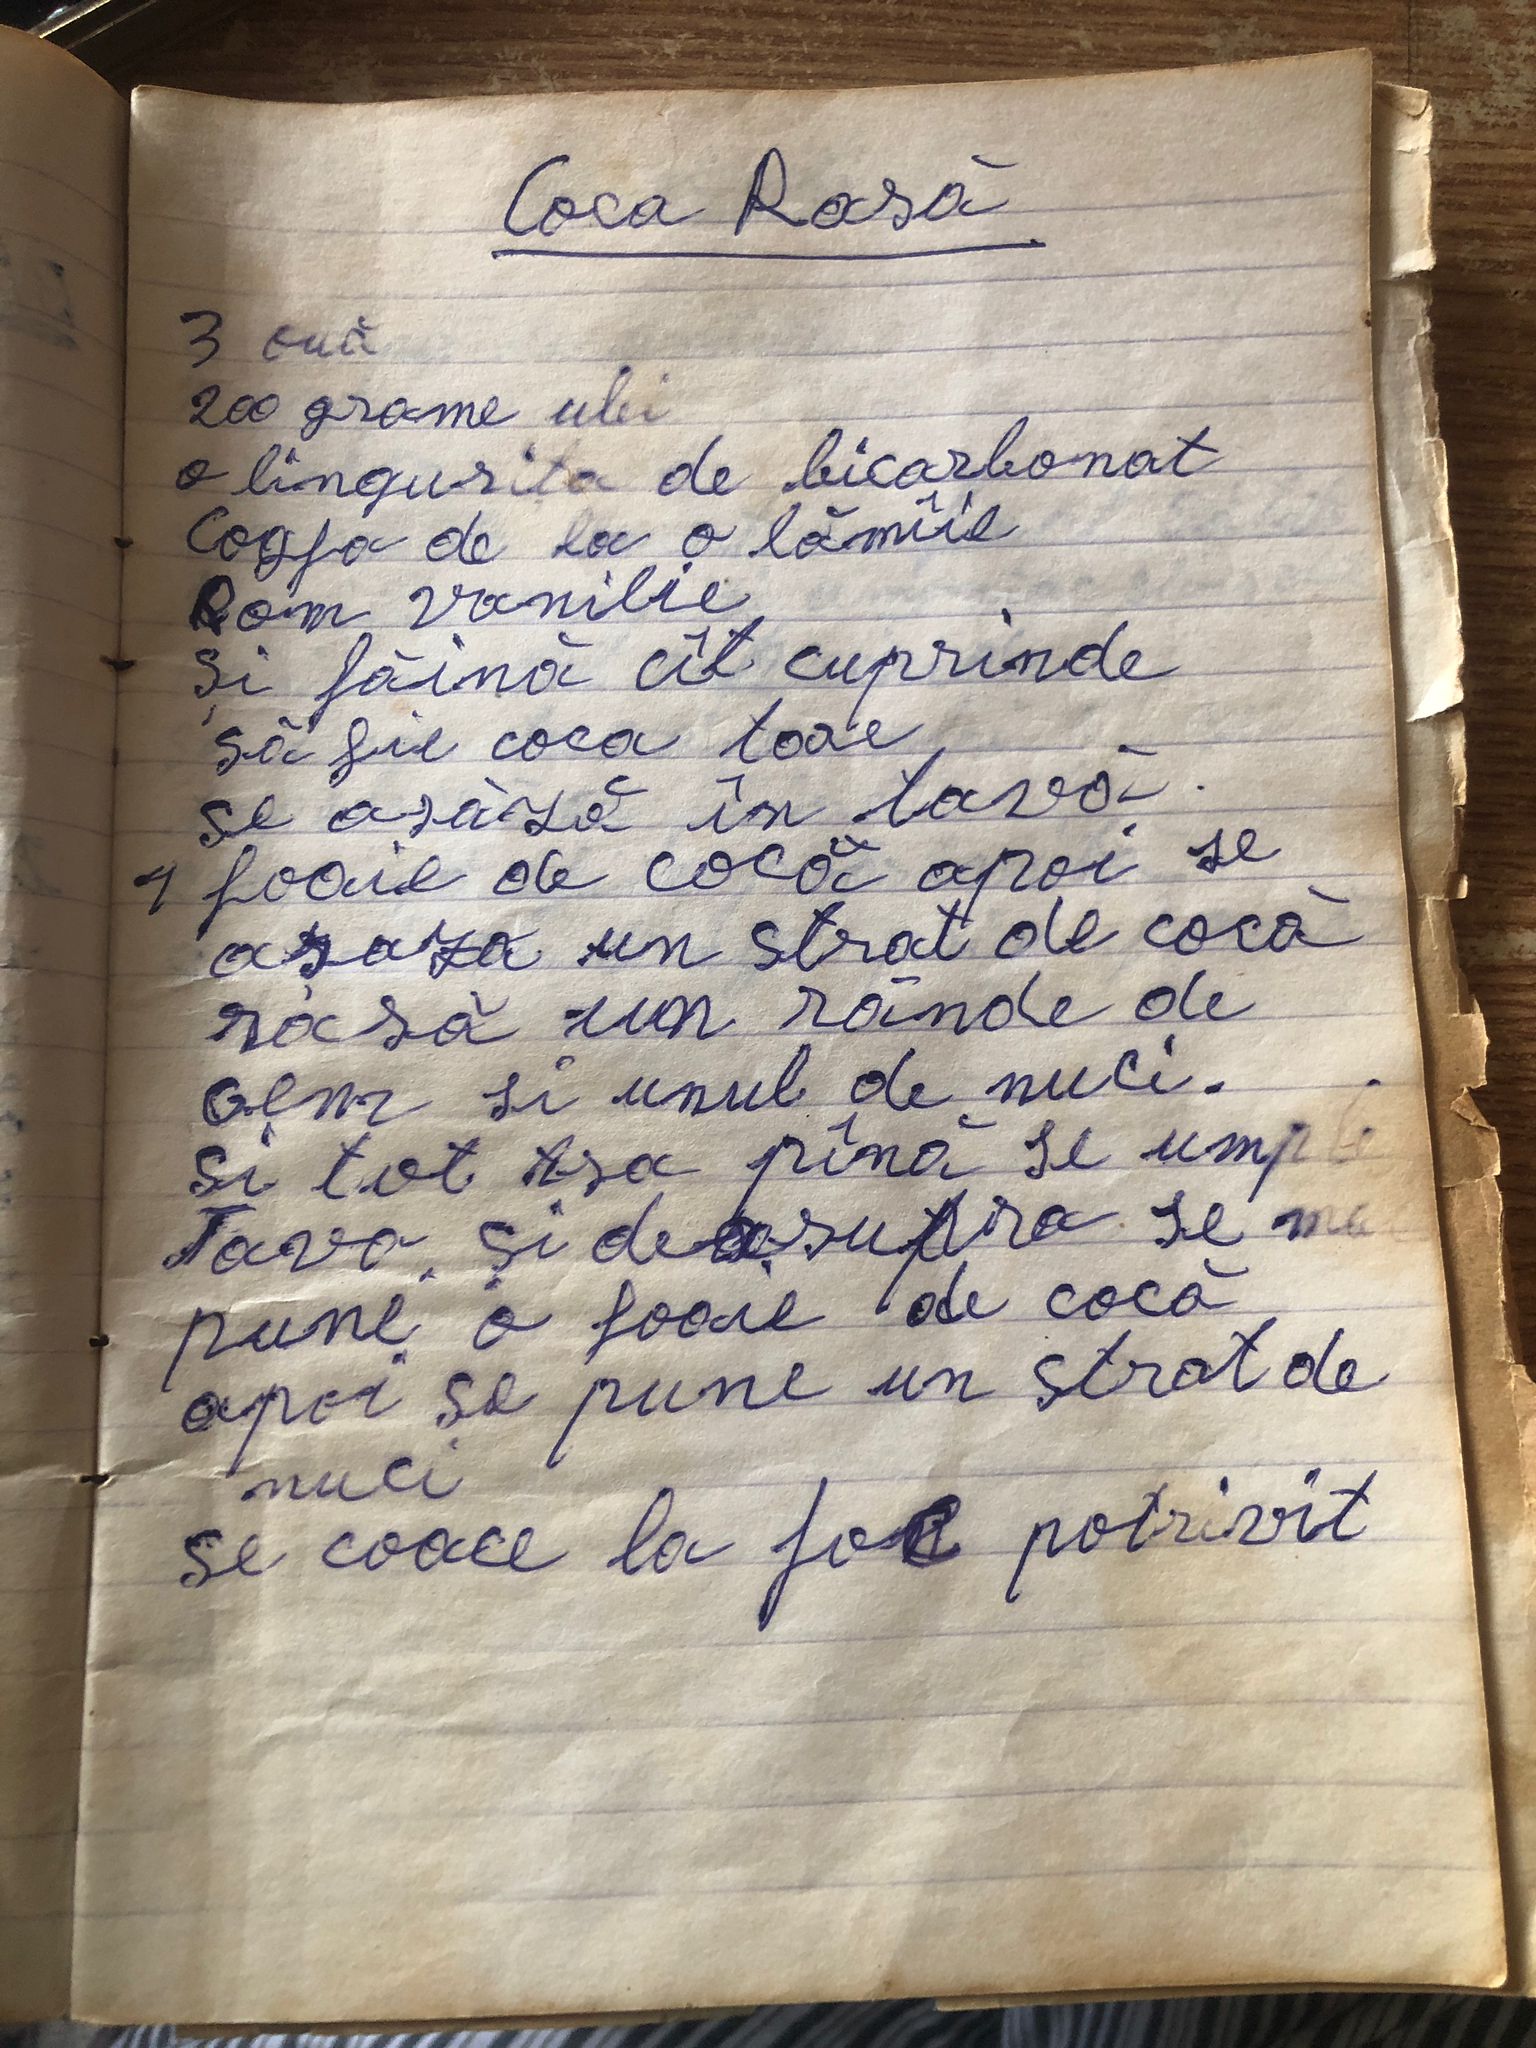 Coca Rasă
3 ouă
200 grame ulei
o lingurița de bicarbonat
Coaja de la o lămîie
Rom vanilie
Și făină cît cuprinde
să fie coca tare
se asăză în tavă.
1 foaie de cocă apoi se
așaza un strat de cocă
rasă un rânde de
gem si unul de nuci.
și tot așa pînă se umple
Tava și deasupra se mai
pune o foaie de cocă
apoi se pune un strat de
nuci
se coace la foc potrivit